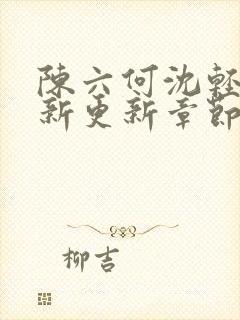 陳六何沈輕
新更新章節
柳吉